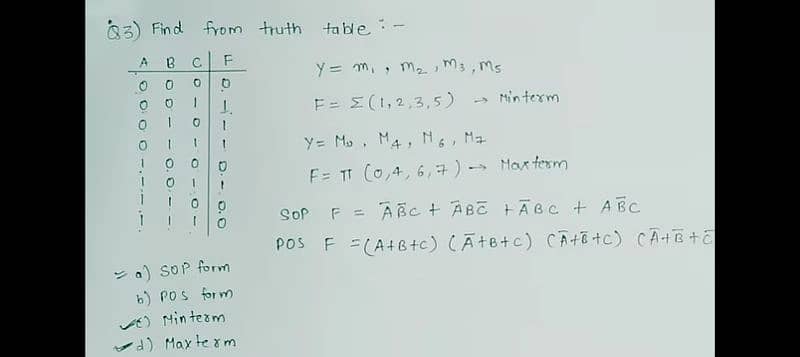 Q3) Find from truth table :-
A B C F
0 0 0 0
0 0 1 1
0 1 0 1
0 1 1 1
1 0 0 0
1 0 1 1
1 1 0 0
1 1 1 0
Y = m₁ , m₂ , m₃ , m₅
F = Σ (1,2,3,5) → Minterm
Y = M₀ , M₄ , M₆ , M₇
F = π (0,4,6,7) → Maxterm
SOP F = A̅B̅C + A̅BC̅ + A̅BC + AB̅C
POS F = (A+B+C) (A̅+B+C) (A̅+B̅+C) (A̅+B̅+C̅
a) SOP form
b) POS form
c) Minterm
d) Maxterm